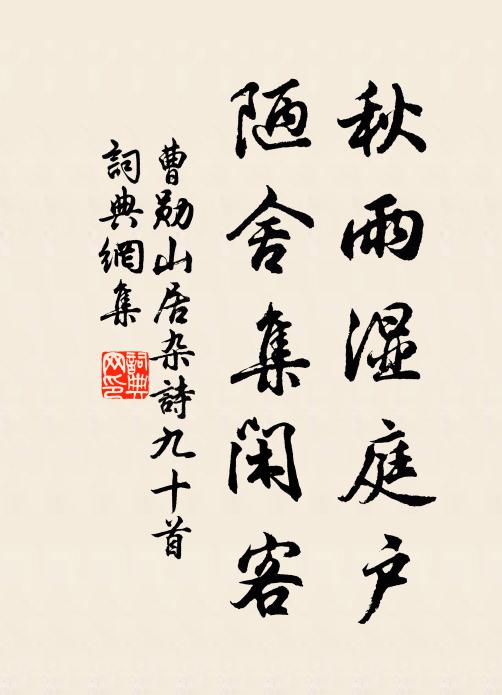 秋雨湿庭户
陋舍集闲客
曹勋山居杂詩九十首
詞典網集
詞典网印